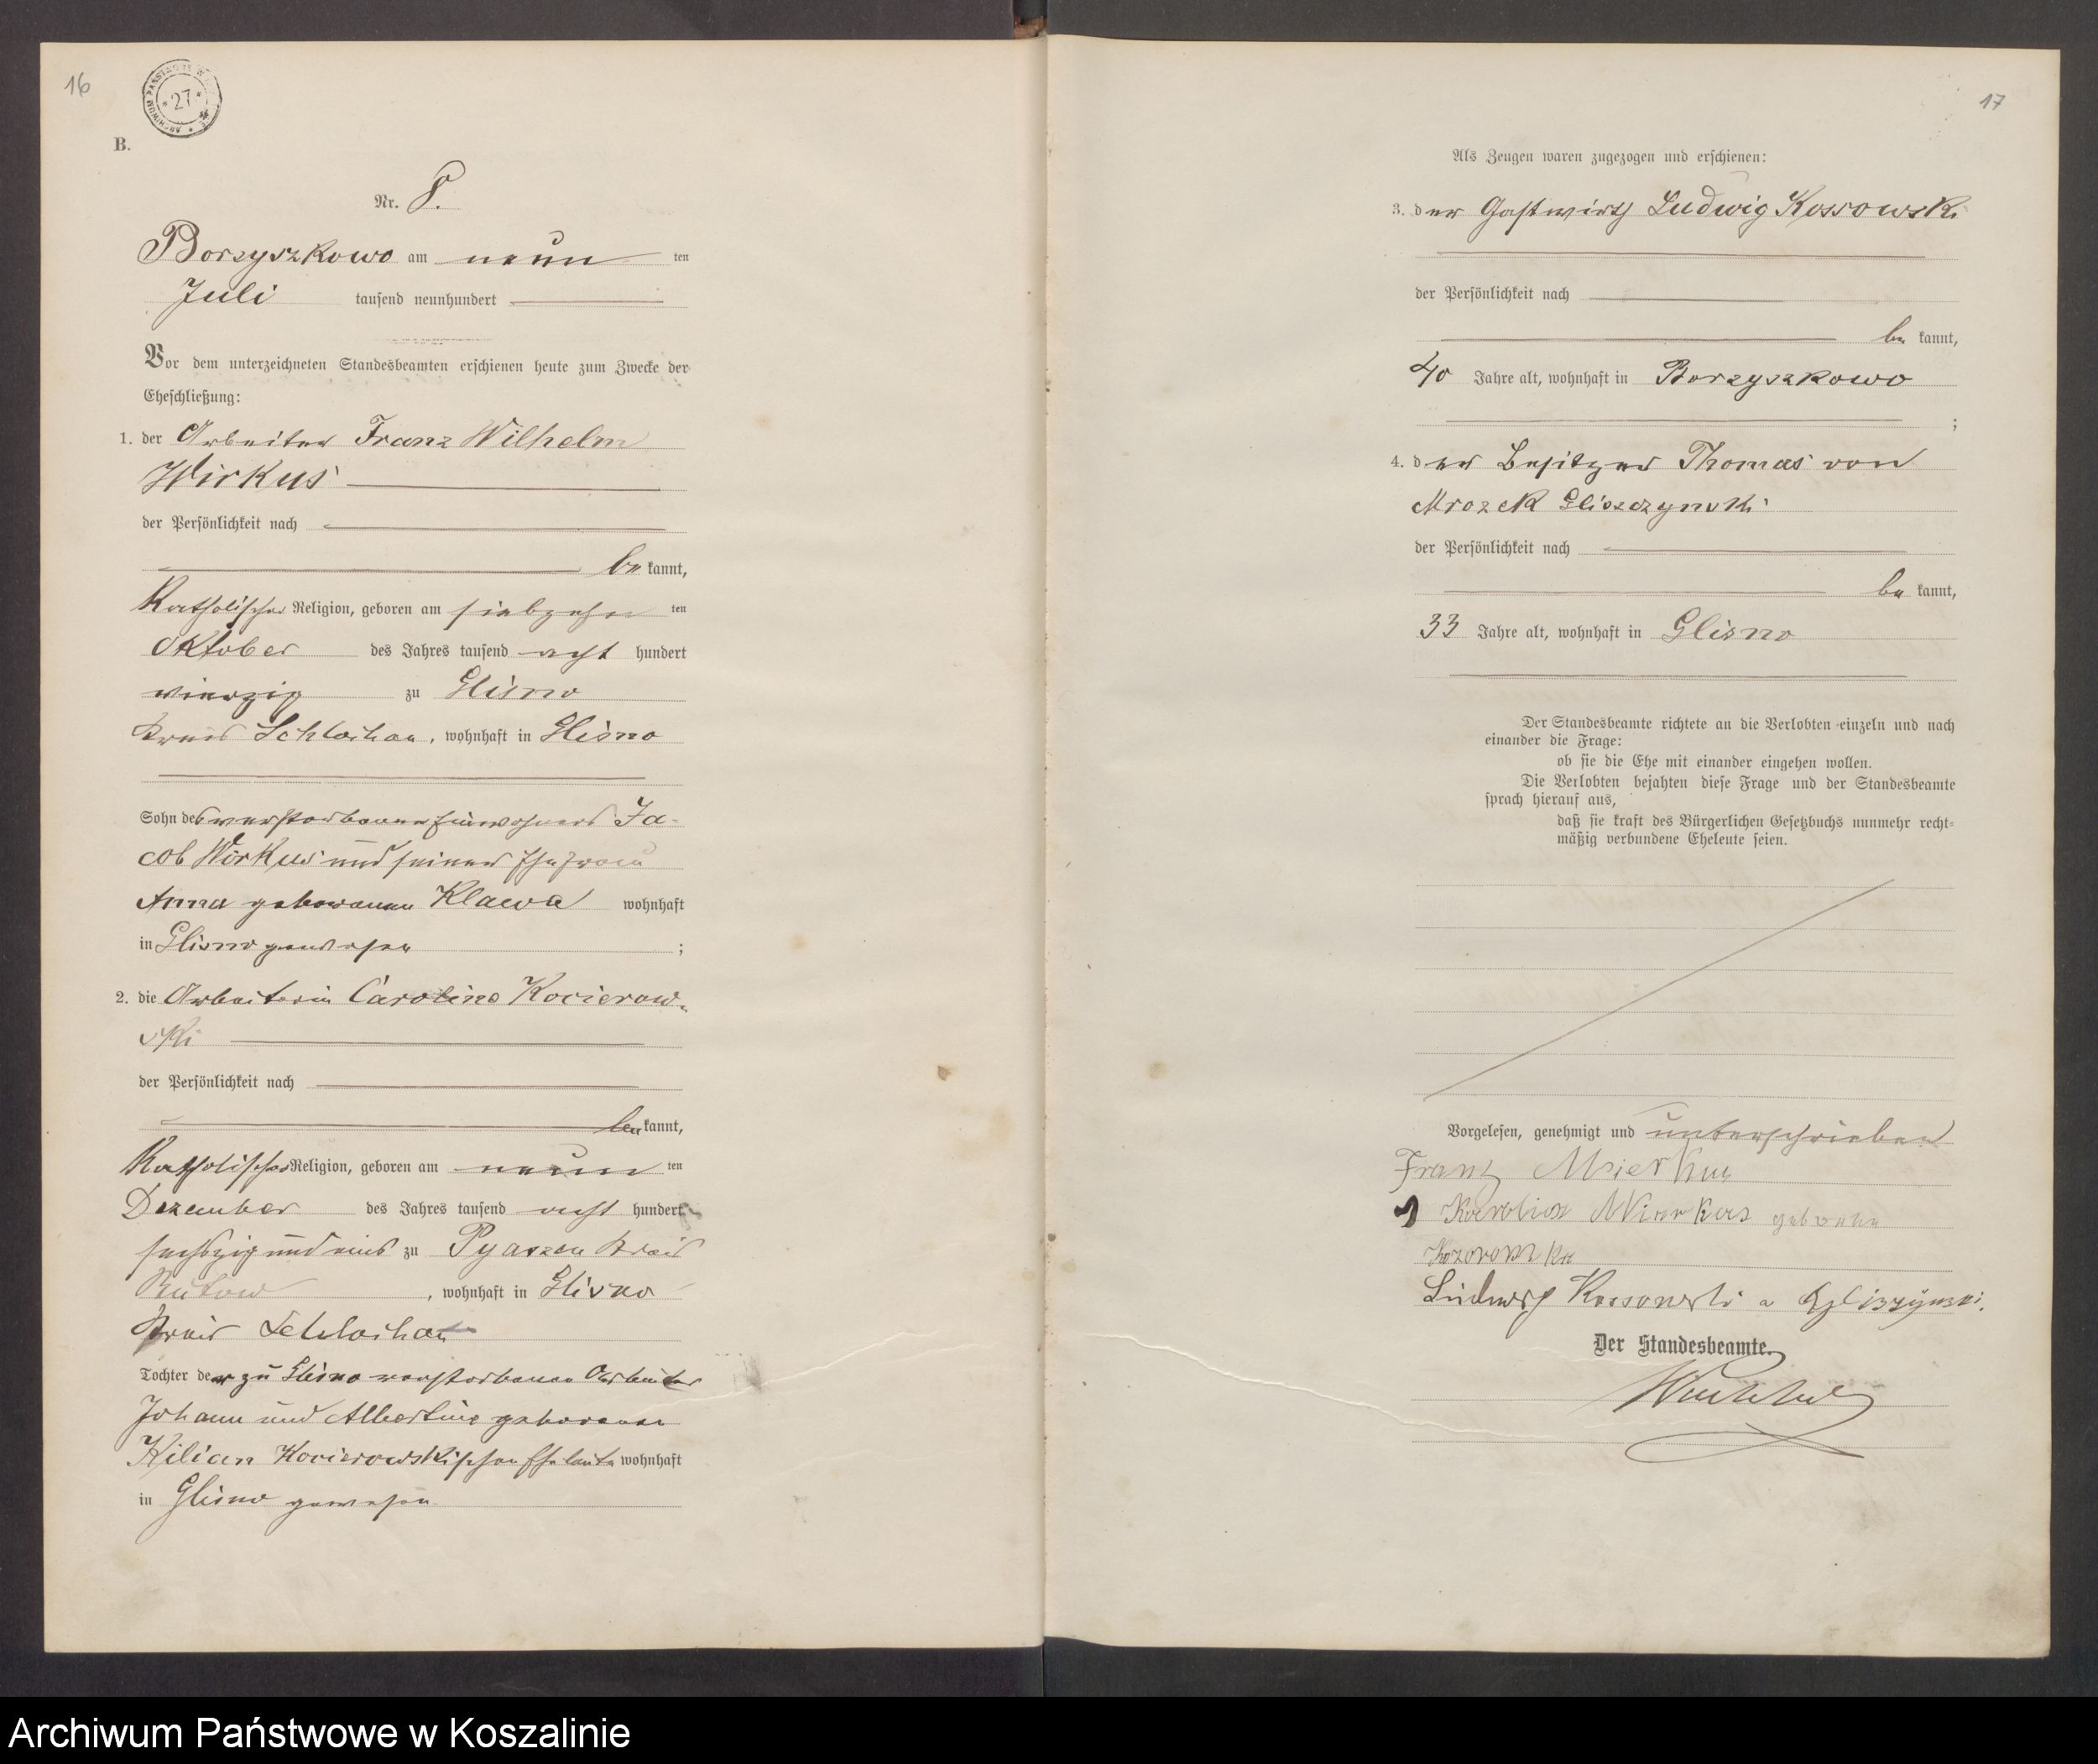 16
ARCHIWUM PAŃSTWOWE W
* 27 *
B.
Nr. 8.
Borzyszkowo am neun ten
Juli tausend neunhundert
Vor dem unterzeichneten Standesbeamten erschienen heute zum Zwecke der
Eheschließung:
1. der Arbeiter Franz Wilhelm
Wirkus
der Persönlichkeit nach
be kannt,
Katholischer Religion, geboren am siebzehn ten
Oktober des Jahres tausend acht hundert
vierzig zu Glisno
Kreis Schlochau, wohnhaft in Glisno
Sohn des verstorbenen Einwohners Ja-
cob Wirkus und seiner Ehefrau
Anna geborenen Klawa wohnhaft
in Glisno gewesen ;
2. die Arbeiterin Caroline Kocierow-
ski
der Persönlichkeit nach
be kannt,
Katholischer Religion, geboren am neun ten
Dezember des Jahres tausend acht hundert
sechszig und eins zu Pyaszen Kreis
Bütow, wohnhaft in Glisno
Kreis Schlochau
Tochter der zu Glisno verstorbenen Arbeiter
Johann und Albertine geborenen
Kilian Kocierowskischen Eheleute wohnhaft
in Glisno gewesen
17
Als Zeugen waren zugezogen und erschienen:
3. der Gastwirth Ludwig Kossowski
der Persönlichkeit nach
be kannt,
40 Jahre alt, wohnhaft in Borzyszkowo
;
4. der Besitzer Thomas von
Mrozek Gliszczynski
der Persönlichkeit nach
be kannt,
33 Jahre alt, wohnhaft in Glisno
Der Standesbeamte richtete an die Verlobten einzeln und nach
einander die Frage:
ob sie die Ehe mit einander eingehen wollen.
Die Verlobten bejahten diese Frage und der Standesbeamte
sprach hierauf aus,
daß sie kraft des Bürgerlichen Gesetzbuchs nunmehr recht-
mäßig verbundene Eheleute seien.
Vorgelesen, genehmigt und unterschrieben
Franz
Ludwig Kossowski
Der Standesbeamte.
Archiwum Państwowe w Koszalinie